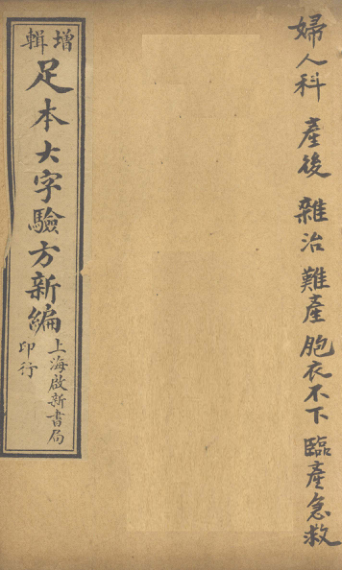 婦人科 產後 雜治 難產 胞衣不下 臨產急救
增輯
足本大字驗方新編
上海啟新書局
印行